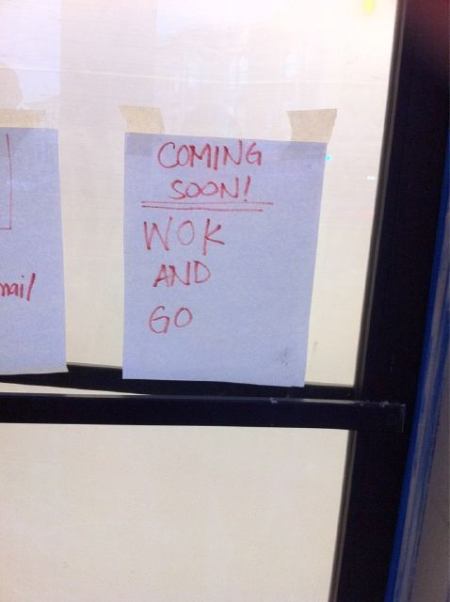 COMING
SOON!
WOK
AND
GO
mail